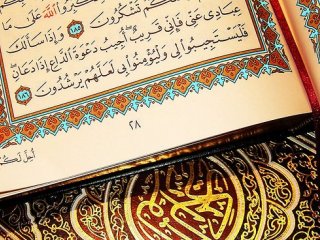 ٱللَّهَ عَلَىٰ مَا
تَشْكُرُونَ ١٨٥ وَإِذَا سَأَلَكَ
عِبَادِى عَنِّى فَإِنِّى قَرِيبٌ أُجِيبُ دَعْوَةَ ٱلدَّاعِ إِذَا دَعَانِ
فَلْيَسْتَجِيبُوا۟ لِى وَلْيُؤْمِنُوا۟ بِى لَعَلَّهُمْ يَرْشُدُونَ ١٨٦
٢٨